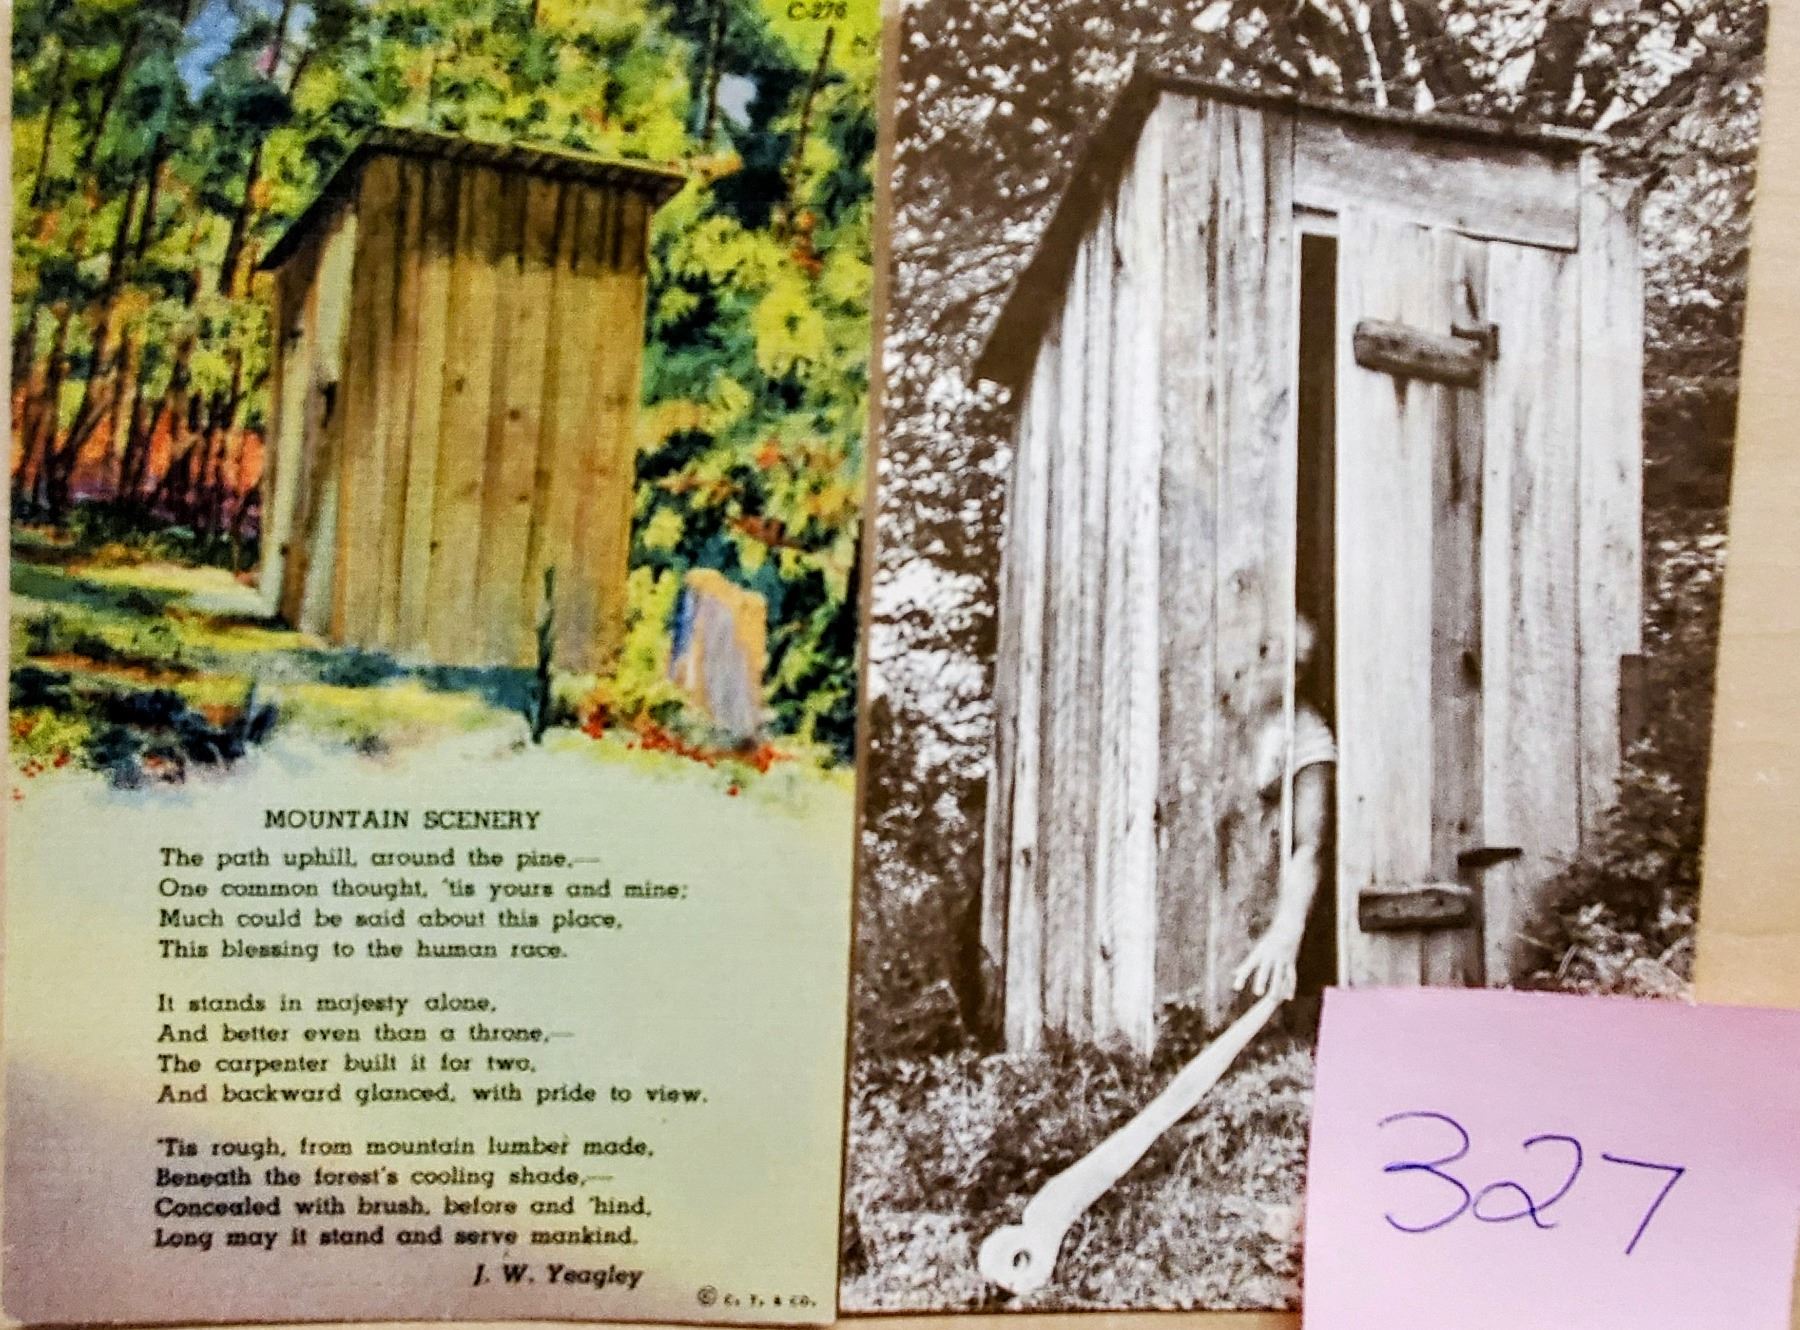 C-276
MOUNTAIN SCENERY
The path uphill, around the pine,—
One common thought, 'tis yours and mine;
Much could be said about this place,
This blessing to the human race.
It stands in majesty alone,
And better even than a throne,—
The carpenter built it for two,
And backward glanced, with pride to view.
'Tis rough, from mountain lumber made,
Beneath the forest's cooling shade,—
Concealed with brush, before and 'hind,
Long may it stand and serve mankind.
J. W. Yeagley
© C. T. & CO.
327